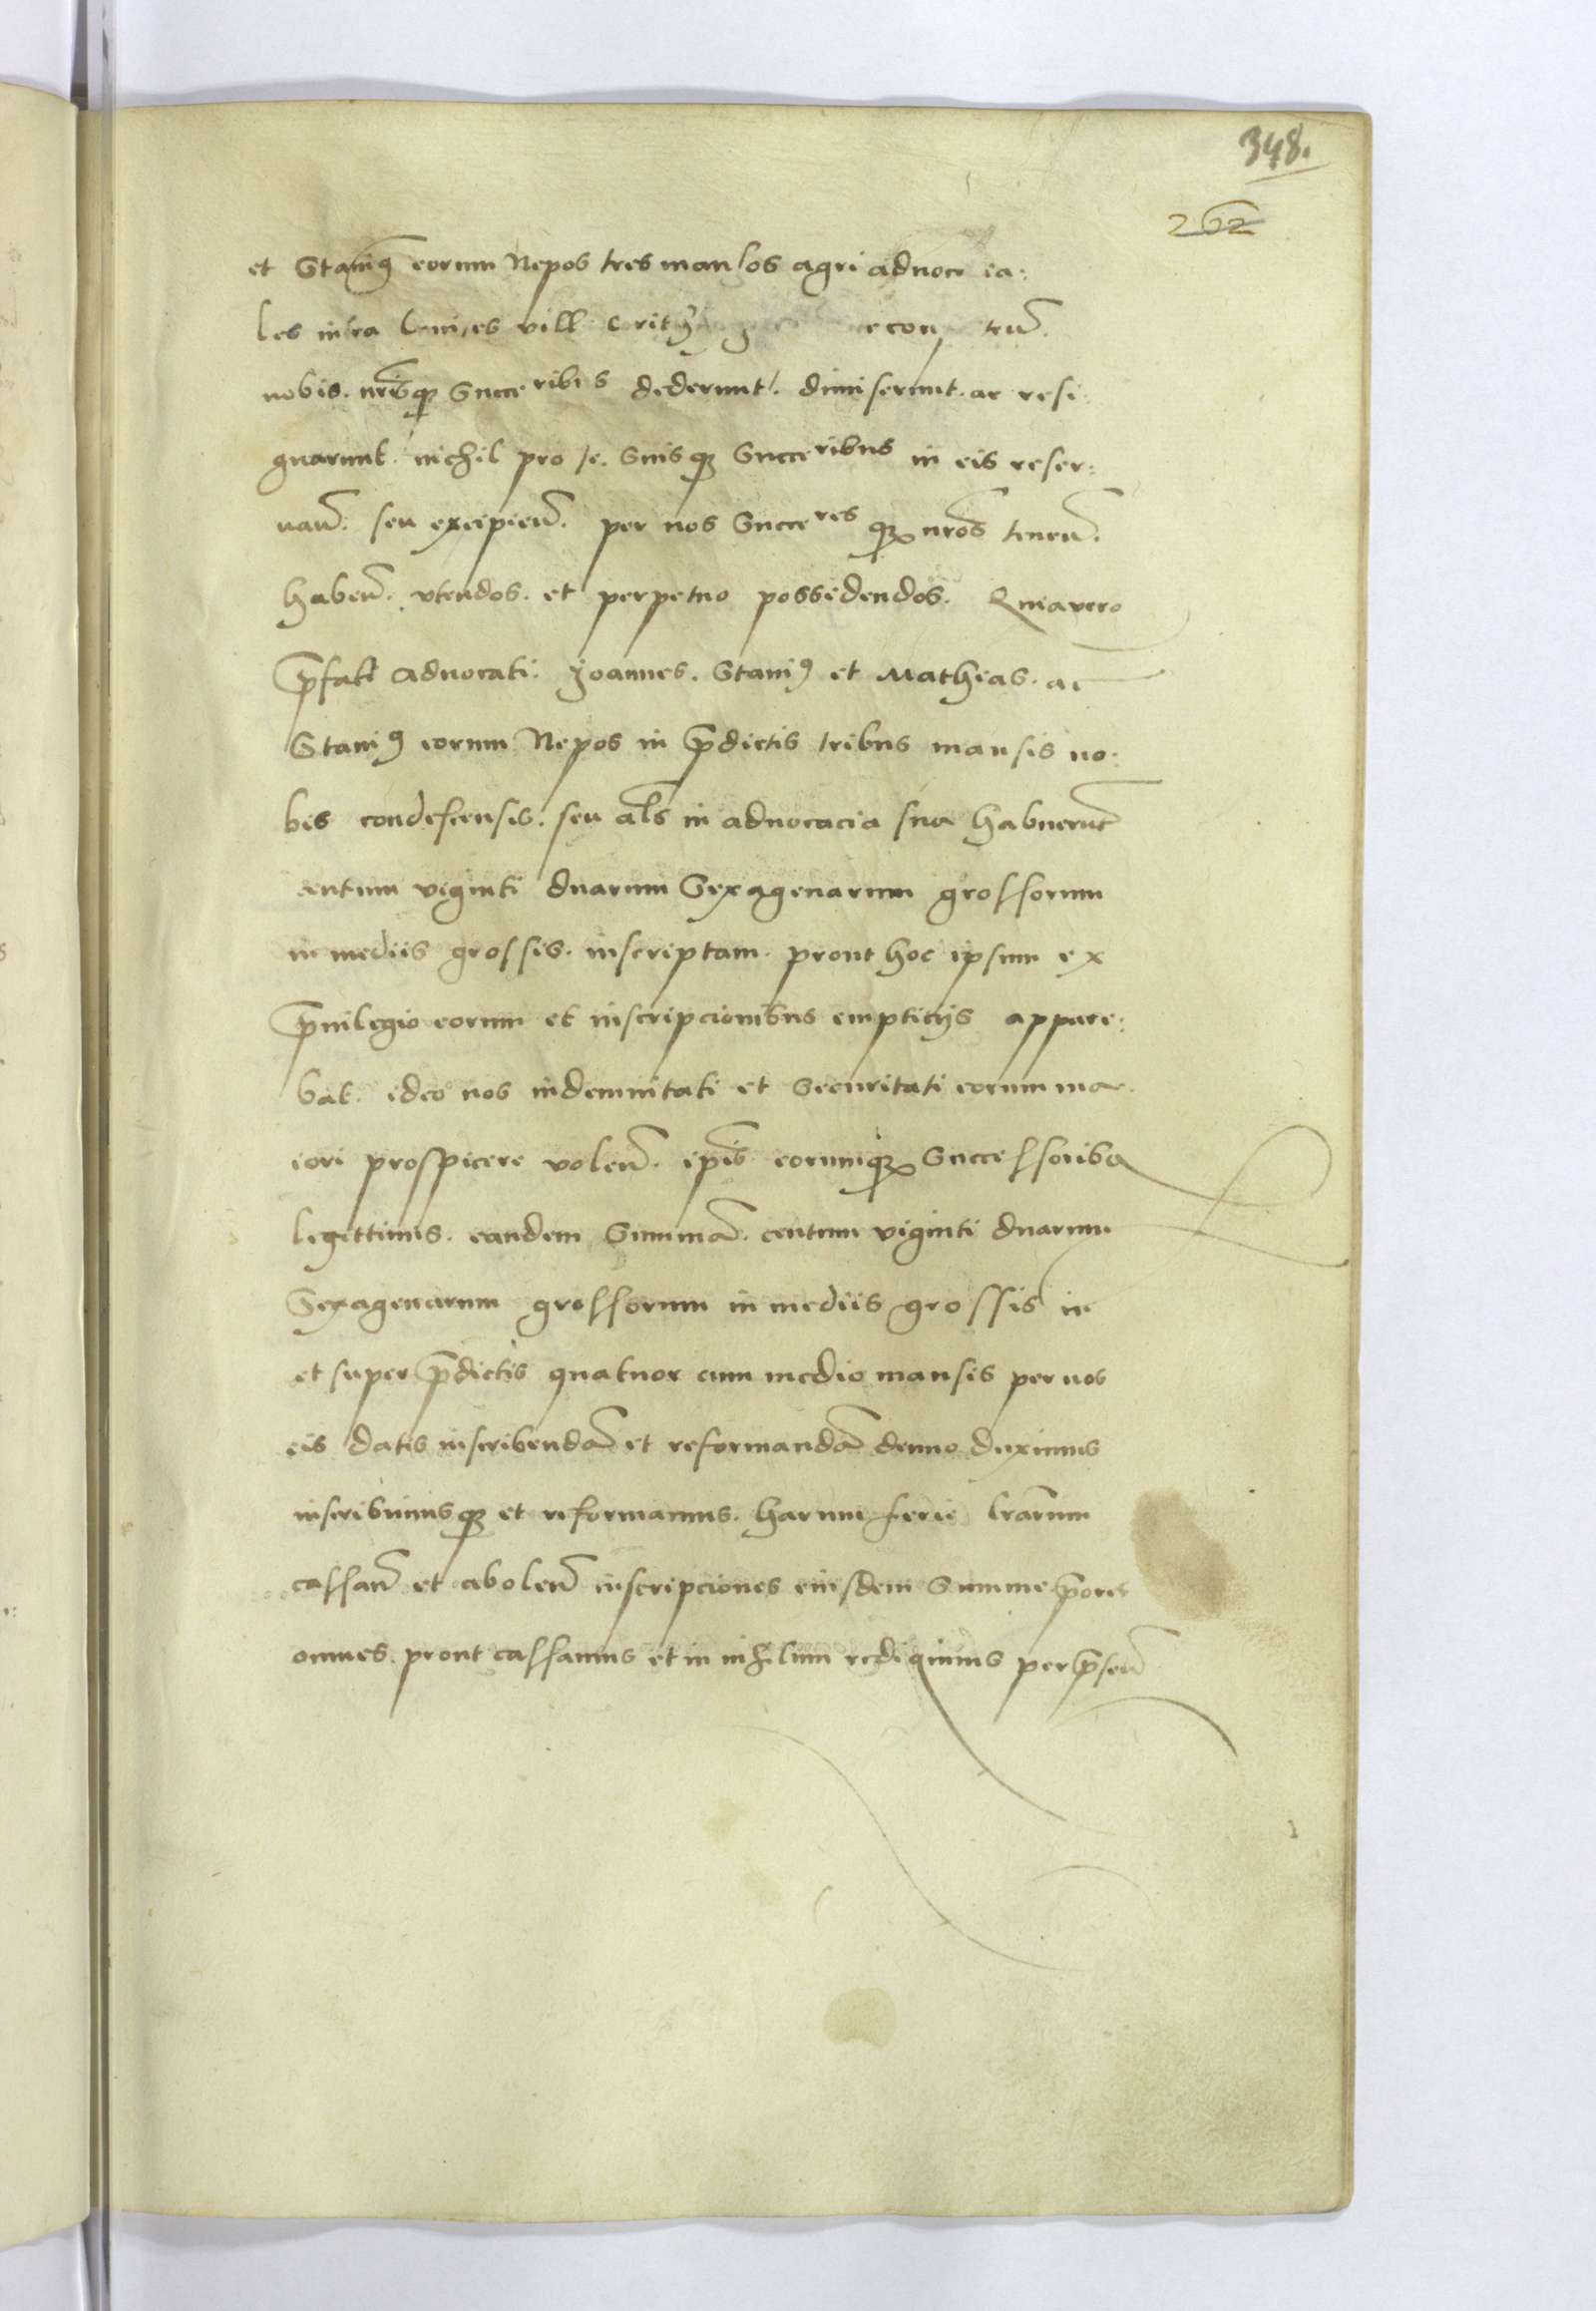 348.
262
et Stanis eorum Nepos tres mansos agri aduoc ia:
les infra limites vill
nobis. nrisq Succeribus dederunt. dimiserunt. ac resi
gnarunt. nichil pro se. Suisq Succeribus in eis reser:
uan. seu excipien. per nos Succeres q nros tenen.
haben. vtendos. et perpetuo possidendos. Quiavero
pfati aduocati. Joannes. Stanis et Mathias. ac
Stanis eorum Nepos in pdictis tribus mansis no:
bis condescensis. seu als in aduocacia sua habuerut
centum viginti duarum Sexagenarum grossorum
in mediis grossis. inscriptam. prout hoc ipsum ex
priuilegio eorum et inscripcionibus empticijs appare:
bat. ideo nos indemnitati et Securitati eorum ma
iori prospicere volen. ipis eorumq Successoriba
legittimis. eandem Summa. centum viginti duarum
Sexagenarum grossorum in mediis grossis in
et super pdictis quatuor cum medio mansis per nos
eis datis inscribenda et reformanda denuo duximus
inscribimusq et reformamus. harum serie lrarum
cassan et abolen inscripciones eiusdem Summe priores
omnes. prout cassamus et in nihilum redigimus per psen